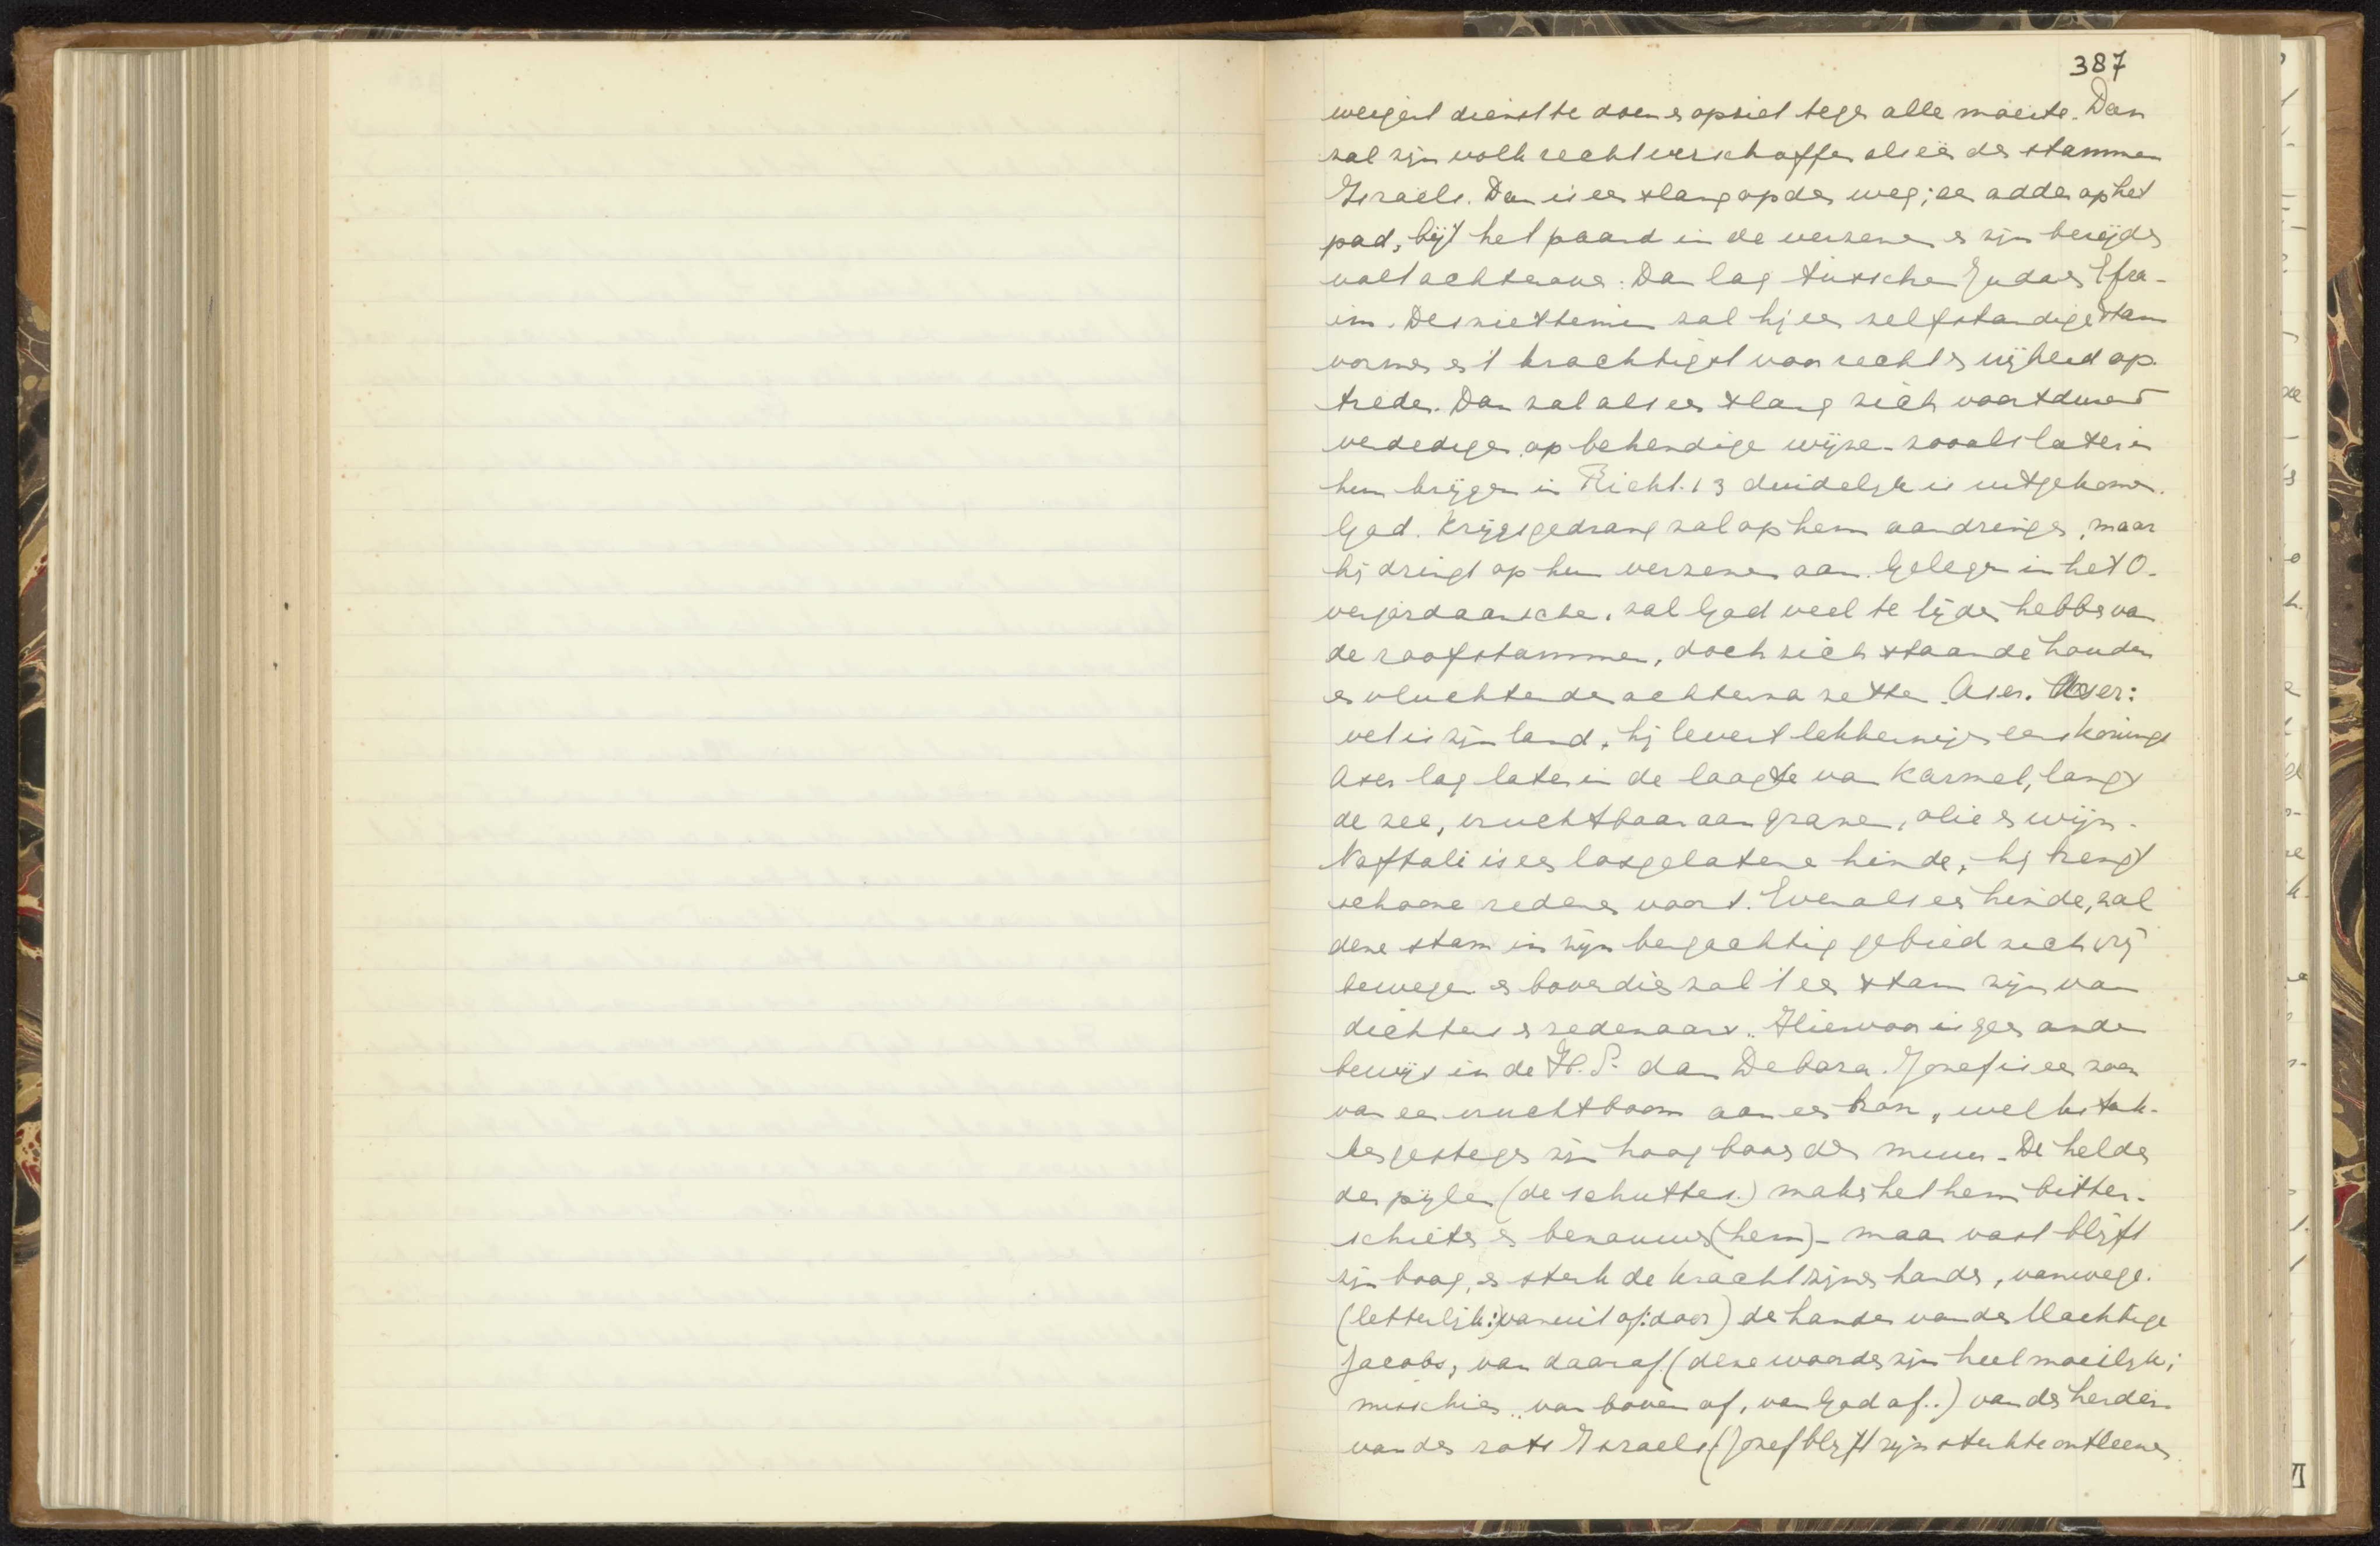 387
weigert dienst te doen en opziet tegen alle moeite. Dan
zal zijn volk recht verschaffen als een der stammen
Israels. Dan is een slang op den weg; een adder op het
pad, bijt het paard in de verzenen en zijn berijder
valt achterover. Dan lag tusschen Juda en Efra-
im. Desniettemin zal hij een zelfstandige stam
vormen en 't krachtigst voor recht en vrijheid op-
treden. Dan zal als een slang zich voortdurend
verdedigen op behendige wijze. zooals later in
hun krijgen in Richt. 13 duidelijk is uitgekomen.
Gad. Krijgsgedrang zal op hem aandringen, maar
hij dringt op hun verzenen aan. Gelegen in het O-
verjordaansche, zal Gad veel te lijden hebben van
de roofstammen, doch zich staande houden
en vluchtenden achterna zetten. Aser. Aser:
vet is zijn land, hij levert lekkernijen eens konings
Aser lag later in de laagte van Karmel, langs
de zee, vruchtbaar aan granen, olie en wijn.
Naftali is een losgelatene hinde, hij brengt
schoone redenen voort. Evenals een hinde, zal
deze stam in zijn bergachtig gebied zich vrij
bewegen en bovendien zal 't een stam zijn van
dichters en redenaars. Hiervoor is geen ander
bewijs in de H.S. dan Debora. Jozef is een zoon
van een vruchtboom aan een bron, welks tak-
ken gestegen zijn hoog boven den muur. De helden
der pijlen (de schutters.) maken het hem bitter.
schieten en benauwen (hem)- maar vast blijft
zijn boog, en sterk de kracht zijner handen, vanwege.
(letterlijk: vanuit of: door) de handen van den Machtige
Jacobs, van daaraf. (deze woorden zijn heel moeilijk;
misschien .. van boven af, van God af..) van den herder.
van den rots Israels (Jozef blijft zijn sterkte ontleenen